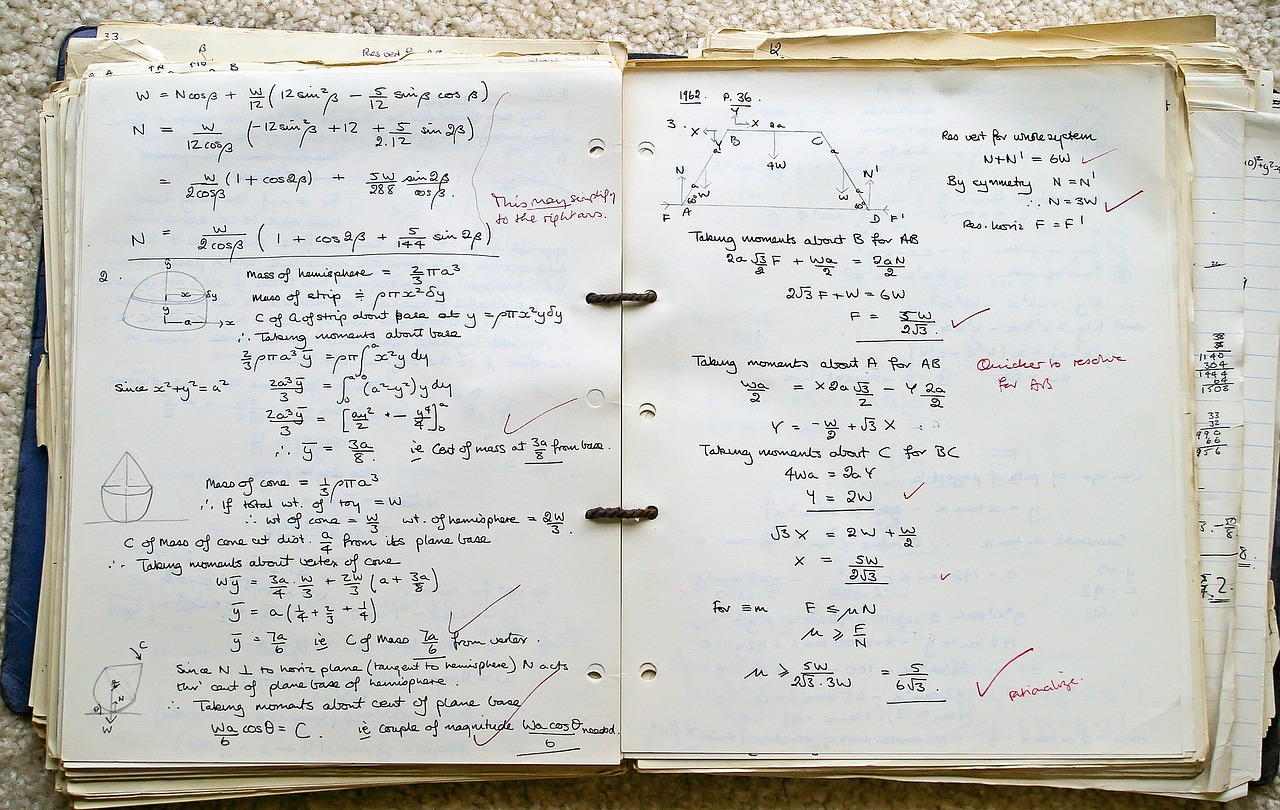 33.
β
Res vert
B
W = Ncosβ + W/12 (12sin²β − 5/12 sinβ cosβ)
N = W/12cosβ (−12sin²β + 12 + 5/2.12 sin2β)
= W/2cosβ (1 + cos2β) + 5W/288 sin2β/cosβ.
This may simplify
to the right ans.
N = W/2cosβ (1 + cos2β + 5/144 sin2β)
2.
y
x δy
y
a x
Mass of hemisphere = 2/3 πa³
Mass of strip ≑ ρπx²δy
C of G of strip about base at y = ρπx²yδy
∴ Taking moments about base
2/3 ρπa³ȳ = ρπ∫₀ᵃ x²y dy
Since x²+y²=a² 2a³ȳ/3 = ∫₀ᵃ (a²−y²)y dy
2a³ȳ/3 = [ay²/2 − y⁴/4]₀ᵃ
∴ ȳ = 3a/8 ie Cent of mass at 3a/8 from base.
Mass of cone = 1/3 ρπa³
∴ If total wt. of toy = W
∴ wt of cone = W/3 wt. of hemisphere = 2W/3.
C of Mass of cone at dist. a/4 from its plane base
∴ Taking moments about vertex of cone
Wȳ = 3a/4 · W/3 + 2W/3 (a + 3a/8)
ȳ = a(1/4 + 2/3 + 1/4)
ȳ = 7a/6 ie C of Mass 7a/6 from vertex.
C
N
θ
W
Since N ⊥ to horiz plane (tangent to hemisphere) N acts
thro' cent of plane base of hemisphere.
∴ Taking moments about cent of plane base
Wa/6 cosθ = C. ie couple of magnitude Wa cosθ/6 needed.
1962. P. 36.
3. X Y X 2a
B C
a 4W a
N a W W a N'
F A 60° 60° D F'
Res vert for whole system
N+N' = 6W
By symmetry N = N'
∴ N = 3W
Res. horiz F = F'
Taking moments about B for AB
2a √3/2 F + Wa/2 = 2aN/2
2√3 F + W = 6W
F = 5W/2√3.
Taking moments about A for AB
Quicker to resolve
for AB
Wa/2 = X 2a √3/2 − Y 2a/2
Y = −W/2 + √3 X
Taking moments about C for BC
4Wa = 2aY
Y = 2W
√3 X = 2W + W/2
X = 5W/2√3
For ≡m F ≤ μN
μ ≥ F/N
μ ≥ 5W/2√3.3W = 5/6√3.
rationalize.
38
38
1140
304
1444
64
1508
33
32
990
66
956